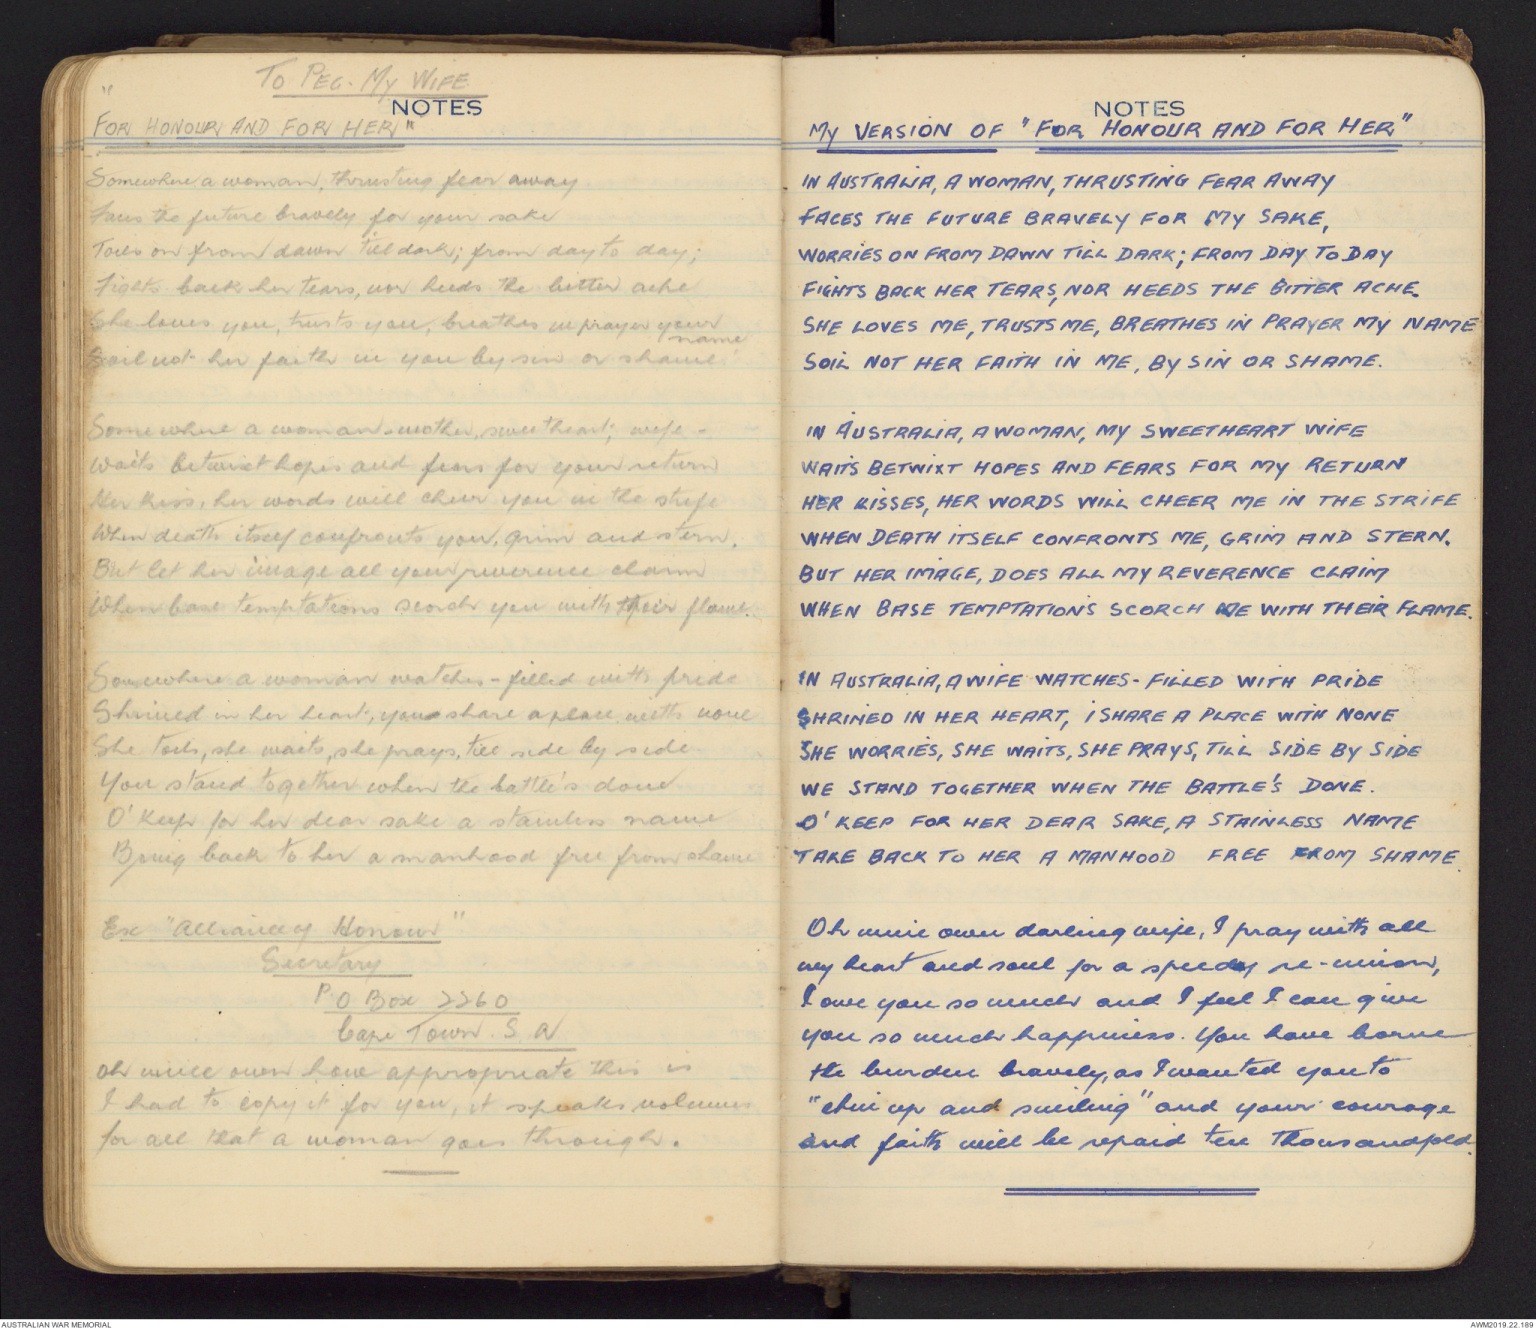 To Peg. My Wife
NOTES
"For Honour and for Her"
Somewhere a woman, thrusting fear away
Faces the future bravely for your sake
Toils on from dawn till dark; from day to day;
Fights back her tears, nor heeds the bitter ache
She loves you, trusts you, breathes in prayer your
name
Soil not her faith in you by sin or shame.
Somewhere a woman - mother, sweetheart, wife -
Waits betwixt hopes and fears for your return
Her kiss, her words will cheer you in the strife
When death itself confronts you, grim and stern.
But let her image all your reverence claim
When base temptations scorch you with their flame.
Somewhere a woman watches - filled with pride
Shrined in her heart, you share a place with none
She toils, she waits, she prays, till side by side
You stand together when the battle's done
O' keep for her dear sake a stainless name
Bring back to her a manhood free from shame
Ex "Alliance of Honour"
Secretary
P O Box 2260
Cape Town. S. A
Oh mine own how appropriate this is
I had to copy it for you, it speaks volumes
for all that a woman goes through.
NOTES
MY VERSION OF "FOR HONOUR AND FOR HER"
IN AUSTRALIA, A WOMAN, THRUSTING FEAR AWAY
FACES THE FUTURE BRAVELY FOR MY SAKE,
WORRIES ON FROM DAWN TILL DARK; FROM DAY TO DAY
FIGHTS BACK HER TEARS, NOR HEEDS THE BITTER ACHE.
SHE LOVES ME, TRUSTS ME, BREATHES IN PRAYER MY NAME
SOIL NOT HER FAITH IN ME, BY SIN OR SHAME.
IN AUSTRALIA, A WOMAN, MY SWEETHEART WIFE
WAITS BETWIXT HOPES AND FEARS FOR MY RETURN
HER KISSES, HER WORDS WILL CHEER ME IN THE STRIFE
WHEN DEATH ITSELF CONFRONTS ME, GRIM AND STERN.
BUT HER IMAGE, DOES ALL MY REVERENCE CLAIM
WHEN BASE TEMPTATIONS SCORCH ME WITH THEIR FLAME.
IN AUSTRALIA, A WIFE WATCHES - FILLED WITH PRIDE
SHRINED IN HER HEART, I SHARE A PLACE WITH NONE
SHE WORRIES, SHE WAITS, SHE PRAYS, TILL SIDE BY SIDE
WE STAND TOGETHER WHEN THE BATTLE'S DONE.
O' KEEP FOR HER DEAR SAKE, A STAINLESS NAME
TAKE BACK TO HER A MANHOOD FREE FROM SHAME.
Oh mine own darling wife, I pray with all
my heart and soul for a speedy re-union,
I owe you so much and I feel I can give
you so much happiness. You have borne
the burden bravely, as I wanted you to
"chin up and smiling" and your courage
and faith will be repaid ten thousandfold.
AUSTRALIAN WAR MEMORIAL
AWM2019.22.189